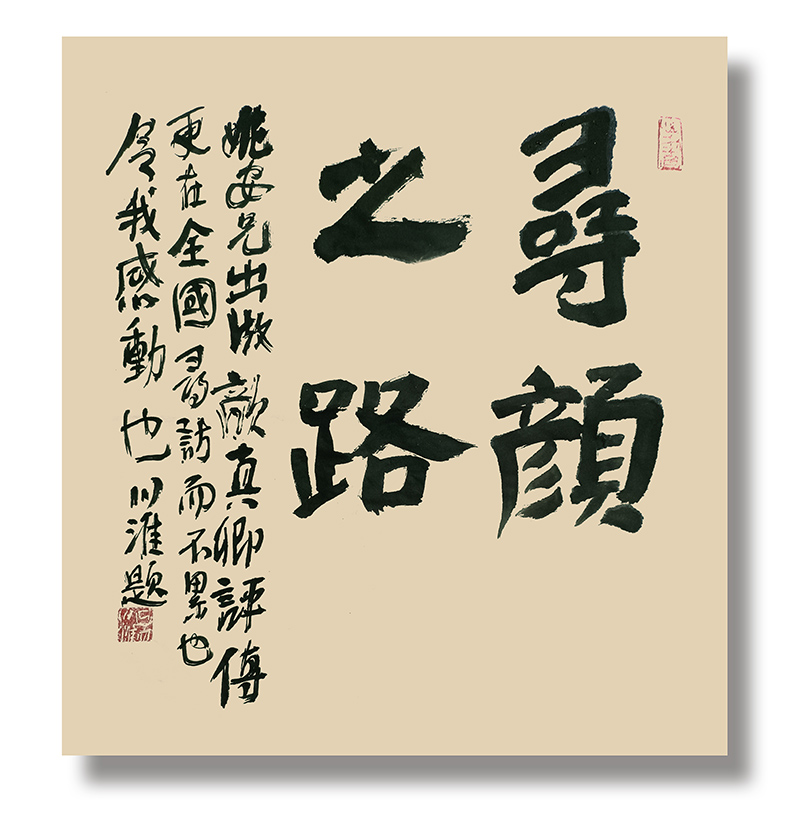 尋顔
之路
姚安兄出版顔真卿評傳
更在全國尋訪而不累也
令我感動也川淮題